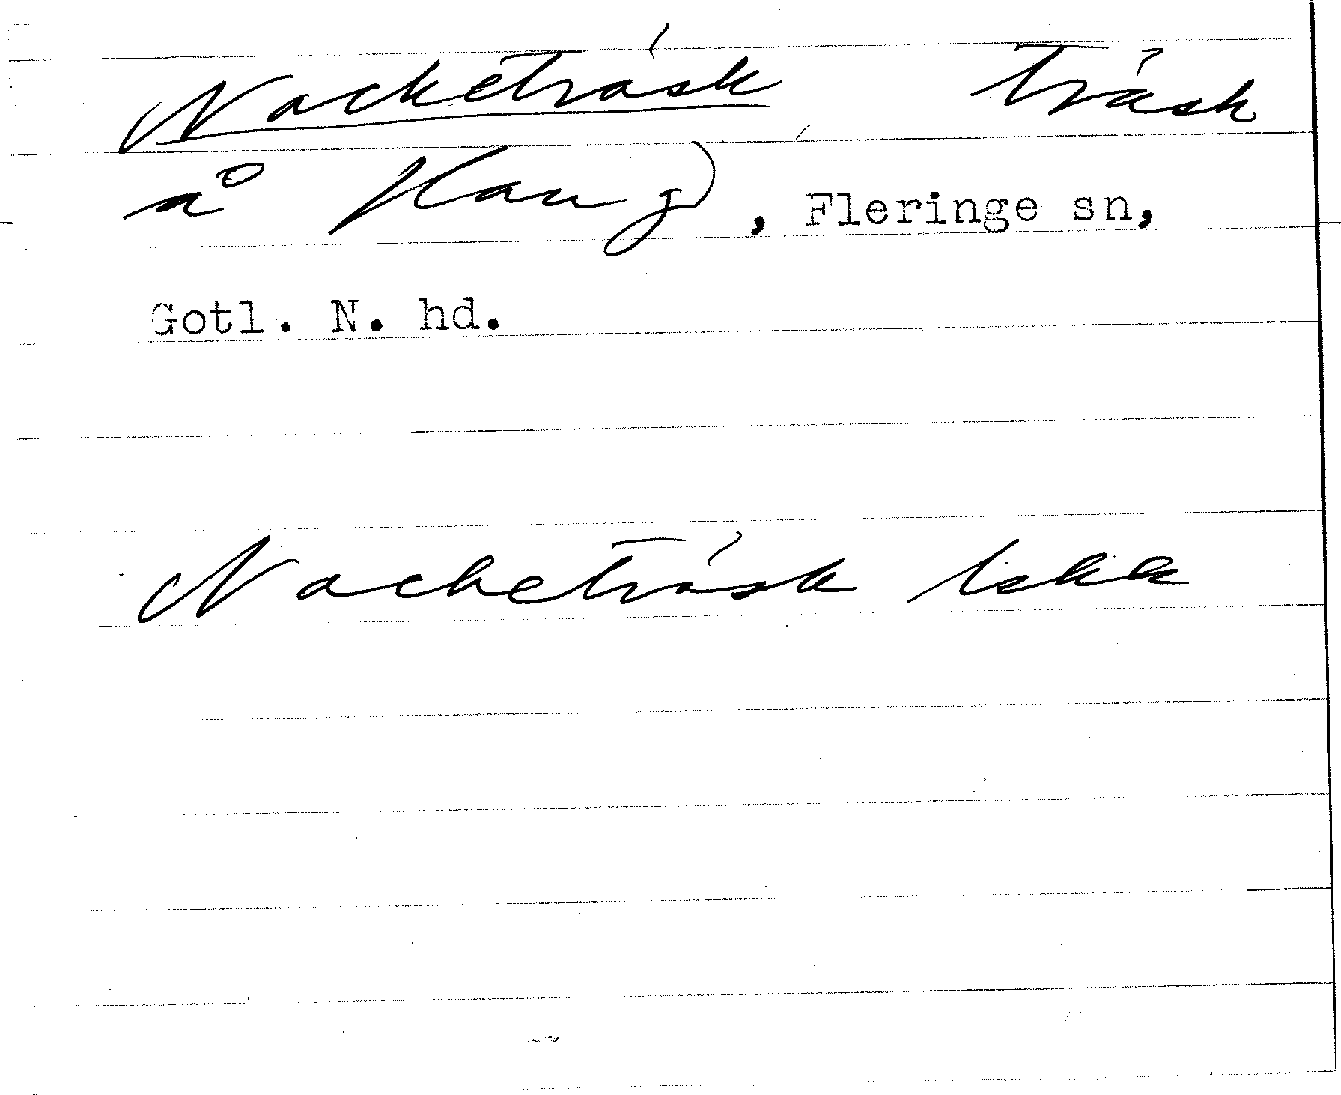 Nacketräsk träsk
å Hau), Fleringe sn,
Gotl. N. hd.
Nacketräsk